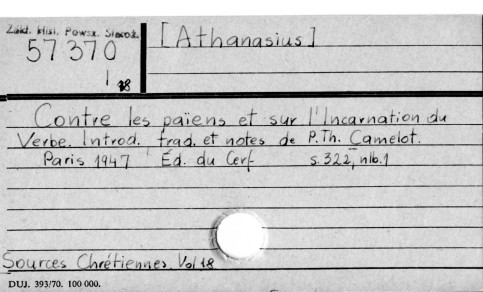 Zakł. Hist. Powsz. Staroż.
57370
[Athanasius]
I 18
Contre les païens et sur l'Incarnation du
Verbe. Introd. trad. et notes de P. Th. Camelot.
Paris 1947 Éd. du Cerf s. 322, nlb. 1
Sources Chrétiennes Vol 18
DUJ. 393/70. 100 000.